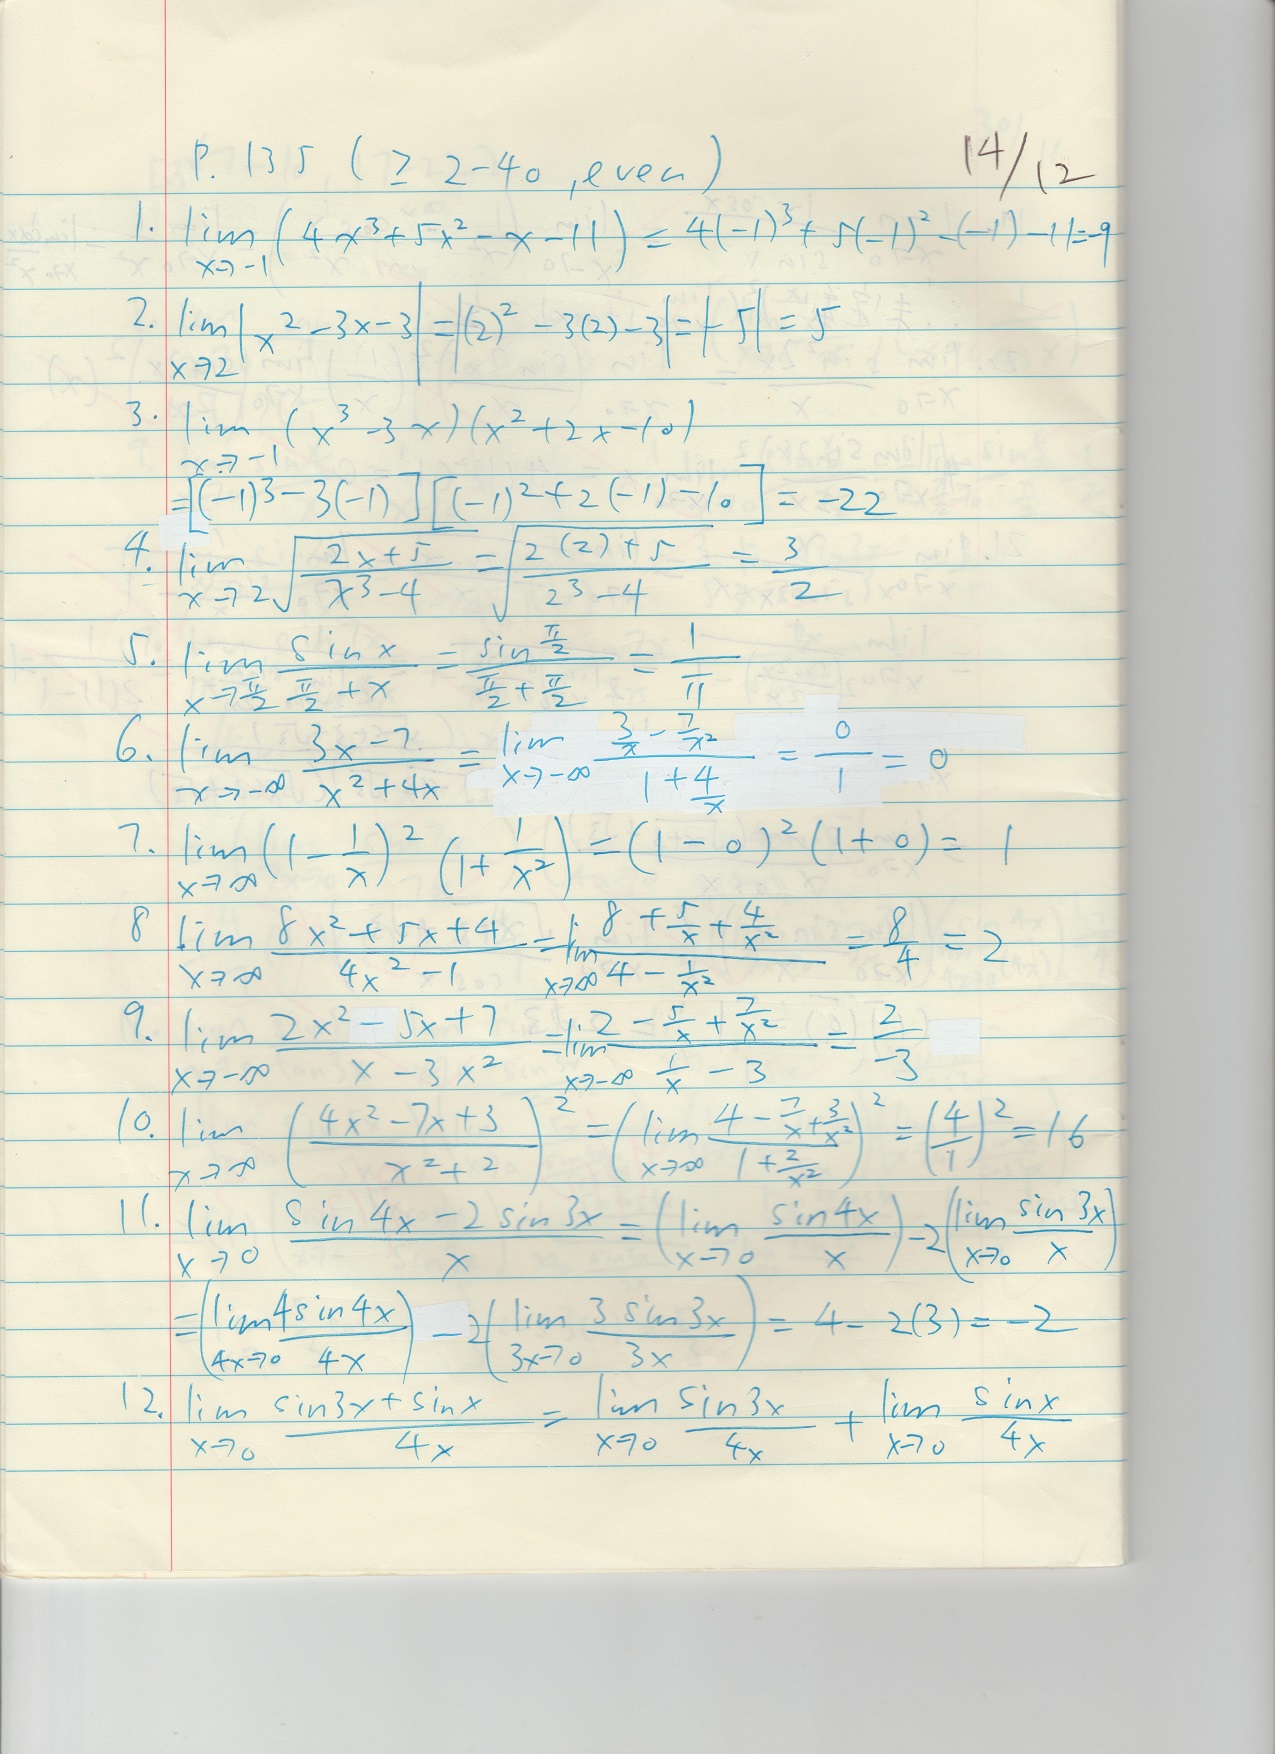 P. 135 ( ≥ 2-40, even)
14/12
1. lim x→-1 (4x³+5x²-x-11) = 4(-1)³+5(-1)²-(-1)-11=-9
2. lim x→2 |x²-3x-3| = |(2)²-3(2)-3| = |-5| = 5
3. lim x→-1 (x³-3x)(x²+2x-10)
= [(-1)³-3(-1)] [(-1)²+2(-1)-10] = -22
4. lim x→2 √((2x+5)/(x³-4)) = √((2(2)+5)/(2³-4)) = 3/2
5. lim x→π/2 (sin x)/(π/2+x) = (sin π/2)/(π/2+π/2) = 1/π
6. lim x→-∞ (3x-7)/(x²+4x) = lim x→-∞ (3/x-7/x²)/(1+4/x) = 0/1 = 0
7. lim x→∞ (1-1/x)² (1+1/x²) = (1-0)² (1+0) = 1
8 lim x→∞ (8x²+5x+4)/(4x²-1) = lim x→∞ (8+5/x+4/x²)/(4-1/x²) = 8/4 = 2
9. lim x→-∞ (2x²-5x+7)/(x-3x²) = lim x→-∞ (2-5/x+7/x²)/(1/x-3) = 2/-3
10. lim x→∞ ((4x²-7x+3)/(x²+2))² = (lim x→∞ (4-7/x+3/x²)/(1+2/x²))² = (4/1)² = 16
11. lim x→0 (sin 4x-2 sin 3x)/x = (lim x→0 (sin 4x)/x) -2(lim x→0 (sin 3x)/x)
= (lim 4x→0 (4 sin 4x)/4x) -2(lim 3x→0 (3 sin 3x)/3x) = 4-2(3) = -2
12. lim x→0 (sin 3x+sin x)/4x = lim x→0 (sin 3x)/4x + lim x→0 (sin x)/4x